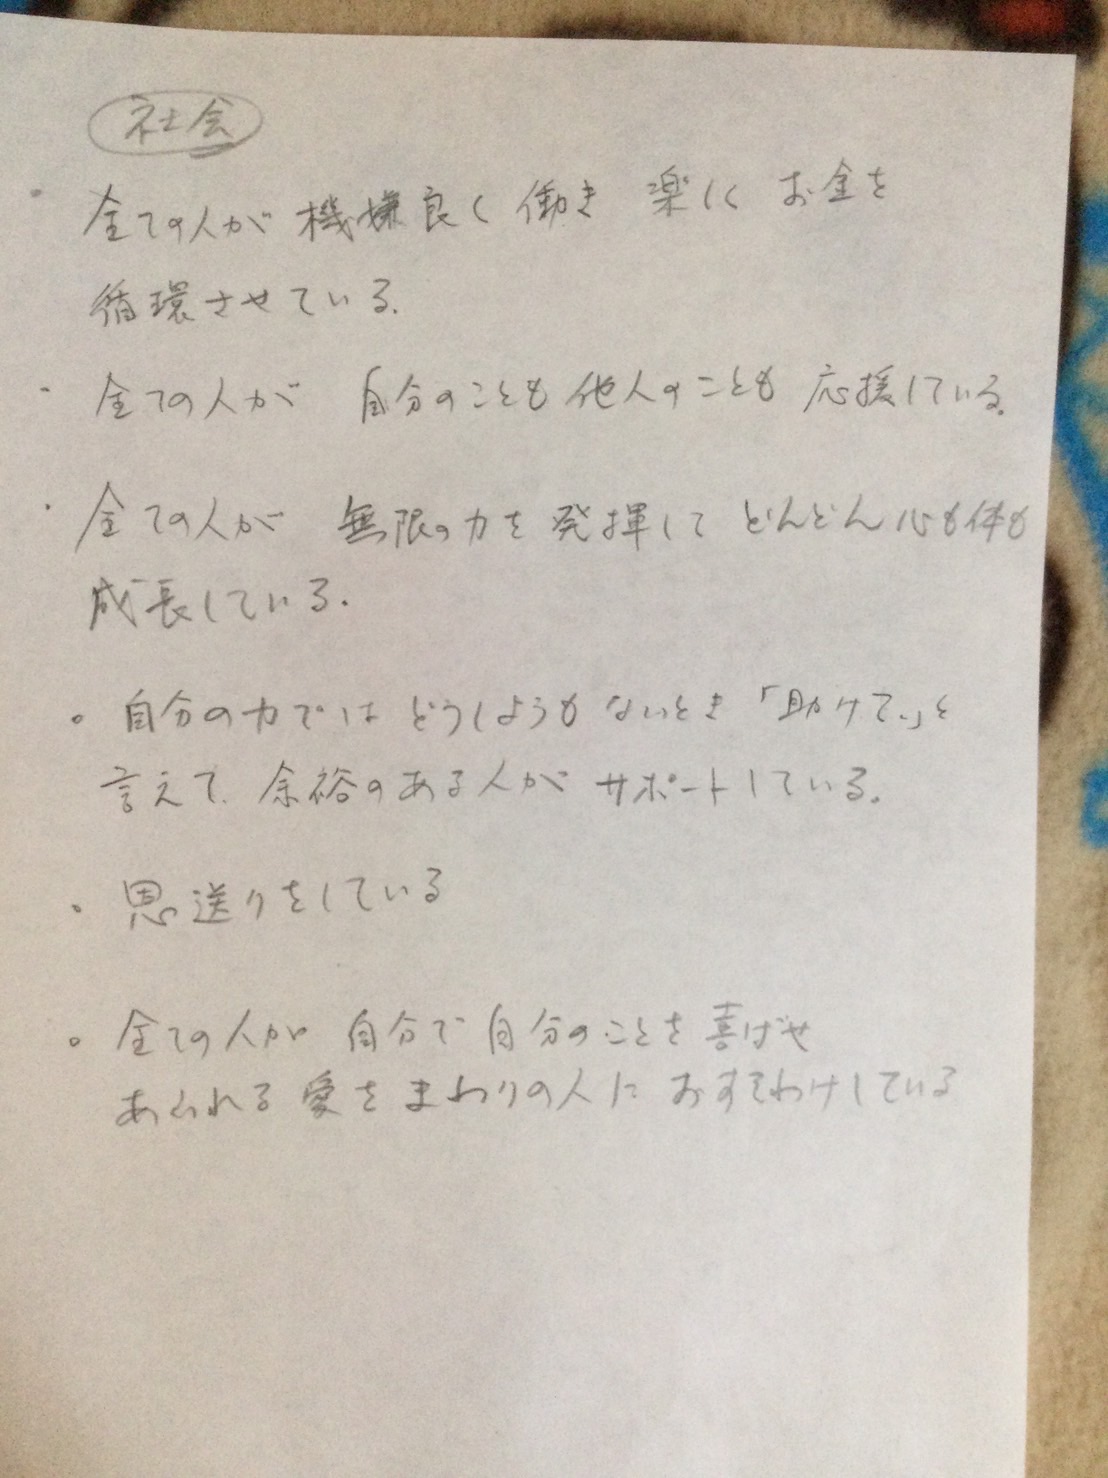 社会
・全ての人が 機嫌良く 働き 楽しく お金を
循環させている.
・全ての人が 自分のことも他人のことも 応援している.
・全ての人が 無限の力を発揮して どんどん心も体も
成長している.
。自分の力では どうしようも ないとき「助けて.」と
言えて. 余裕のある人が サポートしている.
。恩送りをしている
。全ての人が 自分で自分のことを喜ばせ
あふれる愛を まわりの人に おすそわけしている